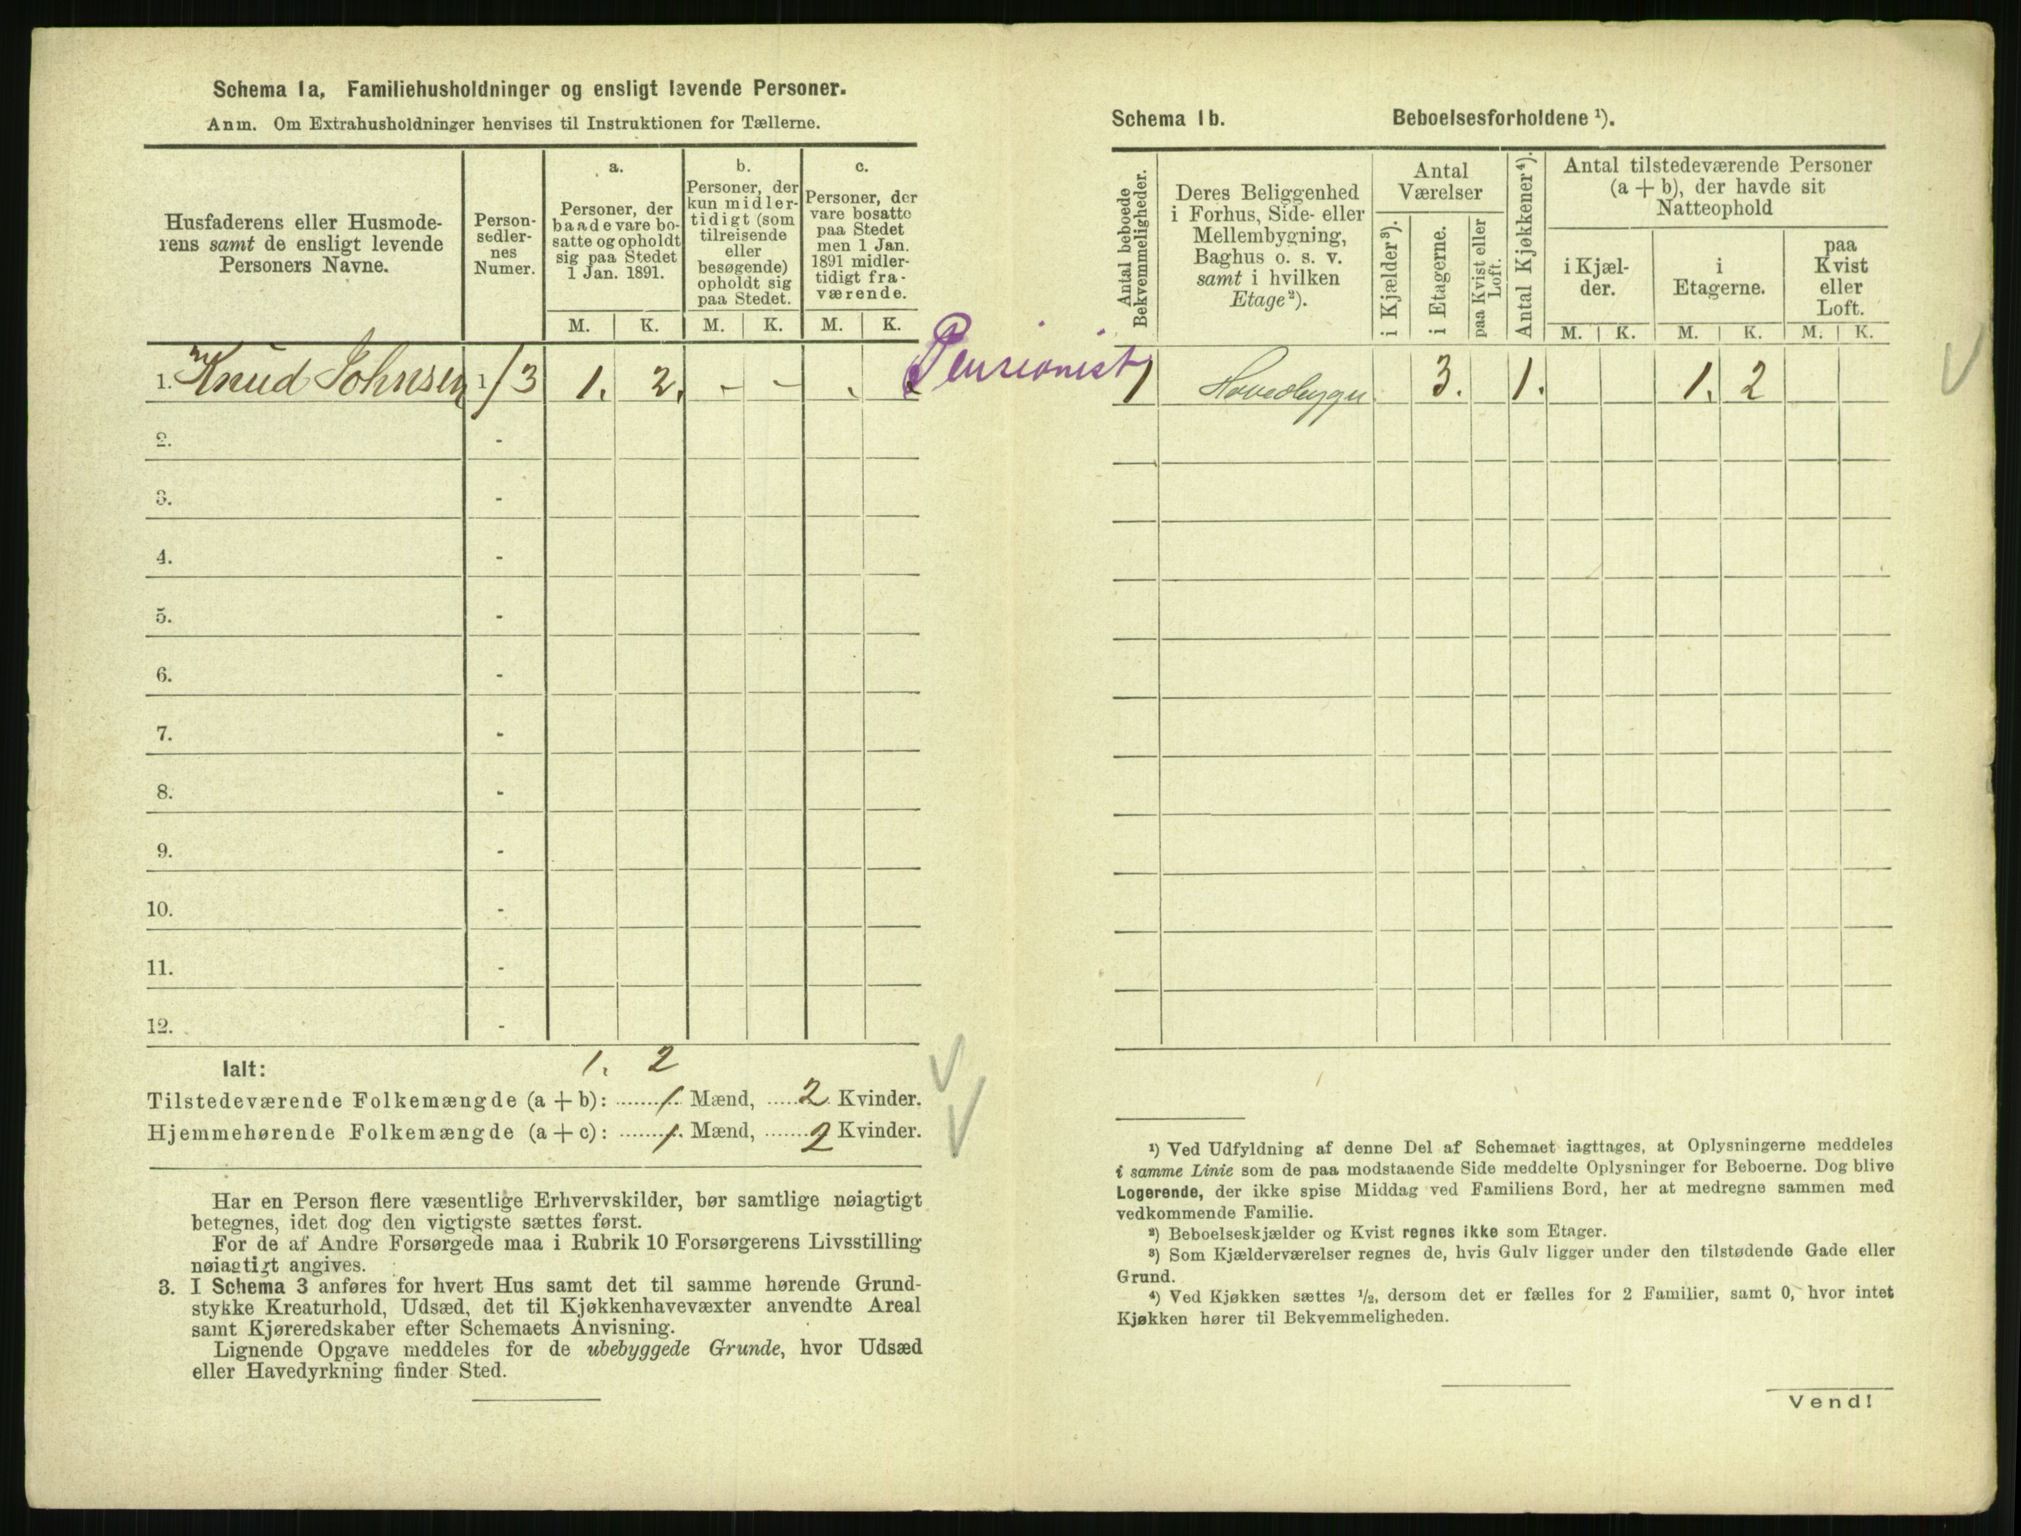 Schema 1a. Familiehusholdninger og ensligt levende Personer.
Anm. Om Extrahusholdninger henvises til Instruktionen for Tællerne.
Husfaderens eller Husmode-
rens samt de ensligt levende
Personers Navne.
Person-
sedler-
nes
Numer.
a.
Personer, der
baade vare bo-
satte og opholdt
sig paa Stedet
1 Jan. 1891.
b.
Personer, der
kun midler-
tidigt (som
tilreisende
eller
besøgende)
opholdt sig
paa Stedet.
c.
Personer, der
vare bosatte
paa Stedet
men 1 Jan.
1891 midler-
tidigt fra-
værende.
M. K. M. K. M. K.
1. Knud Johnsen 1/3 1. 2. - - . Pensionist
2. -
3. -
4. -
5. -
6. -
7. -
8. -
9. -
10. -
11. -
12. -
Ialt: 1. 2
Tilstedeværende Folkemængde (a + b): 1. Mænd, 2. Kvinder.
Hjemmehørende Folkemængde (a + c): 1. Mænd, 2 Kvinder.
Har en Person flere væsentlige Erhvervskilder, bør samtlige nøiagtigt
betegnes, idet dog den vigtigste sættes først.
For de af Andre Forsørgede maa i Rubrik 10 Forsørgerens Livsstilling
nøiagtigt angives.
3. I Schema 3 anføres for hvert Hus samt det til samme hørende Grund-
stykke Kreaturhold, Udsæd, det til Kjøkkenhavevæxter anvendte Areal
samt Kjøreredskaber efter Schemaets Anvisning.
Lignende Opgave meddeles for de ubebyggede Grunde, hvor Udsæd
eller Havedyrkning finder Sted.
Schema 1b. Beboelsesforholdene ¹).
Antal beboede
Bekvemmeligheder.
Deres Beliggenhed
i Forhus, Side- eller
Mellembygning,
Baghus o. s. v.
samt i hvilken
Etage²).
Antal
Værelser
i Kjælder³).
i Etagerne.
paa Kvist eller
Loft.
Antal Kjøkkener⁴).
Antal tilstedeværende Personer
(a + b), der havde sit
Natteophold
i Kjæl-
der.
i
Etagerne.
paa
Kvist
eller
Loft.
M. K. M. K. M. K.
1 Hovedbygn 3. 1. 1. 2
¹) Ved Udfyldning af denne Del af Schemaet iagttages, at Oplysningerne meddeles
i samme Linie som de paa modstaaende Side meddelte Oplysninger for Beboerne. Dog blive
Logerende, der ikke spise Middag ved Familiens Bord, her at medregne sammen med
vedkommende Familie.
²) Beboelseskjælder og Kvist regnes ikke som Etager.
³) Som Kjælderværelser regnes de, hvis Gulv ligger under den tilstødende Gade eller
Grund.
⁴) Ved Kjøkken sættes ½, dersom det er fælles for 2 Familier, samt 0, hvor intet
Kjøkken hører til Bekvemmeligheden.
Vend!